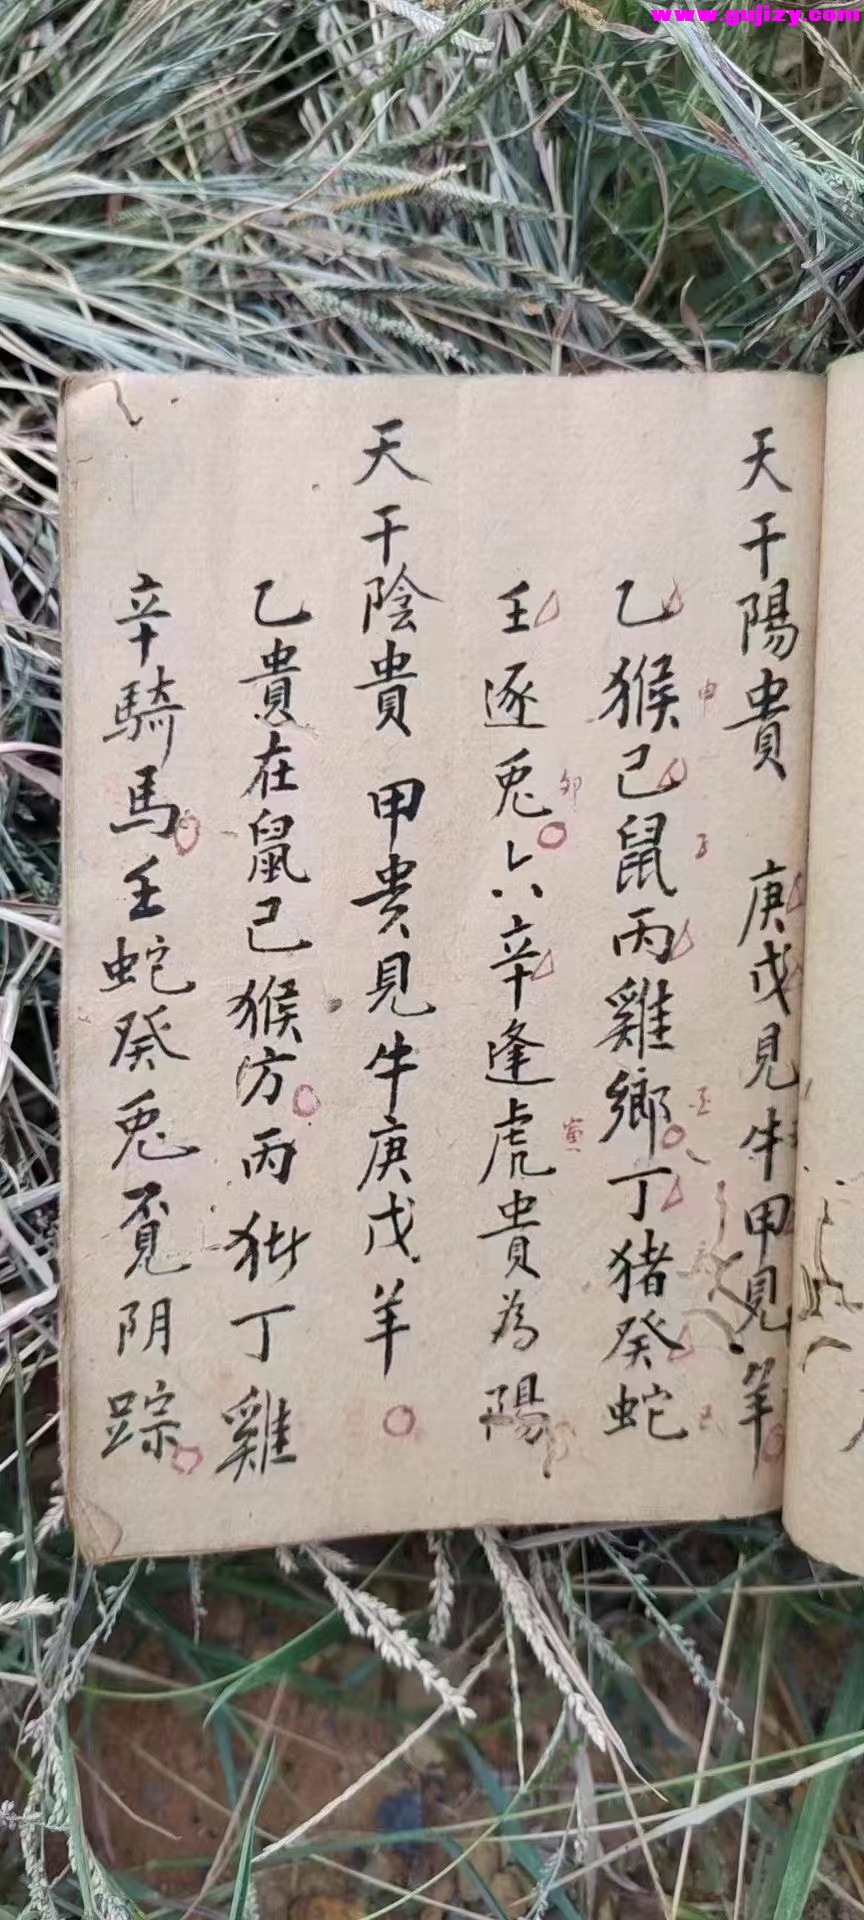 www.gujizy.com
天干陽貴 庚戊見牛甲見羊
乙猴己鼠丙雞鄉丁猪癸蛇
申
子
巳
壬逐兎六辛逢虎貴為陽
卯
寅
天干陰貴 甲貴見牛庚戊羊
乙貴在鼠己猴方丙 丁雞
辛騎馬壬蛇癸兎覔阴踪